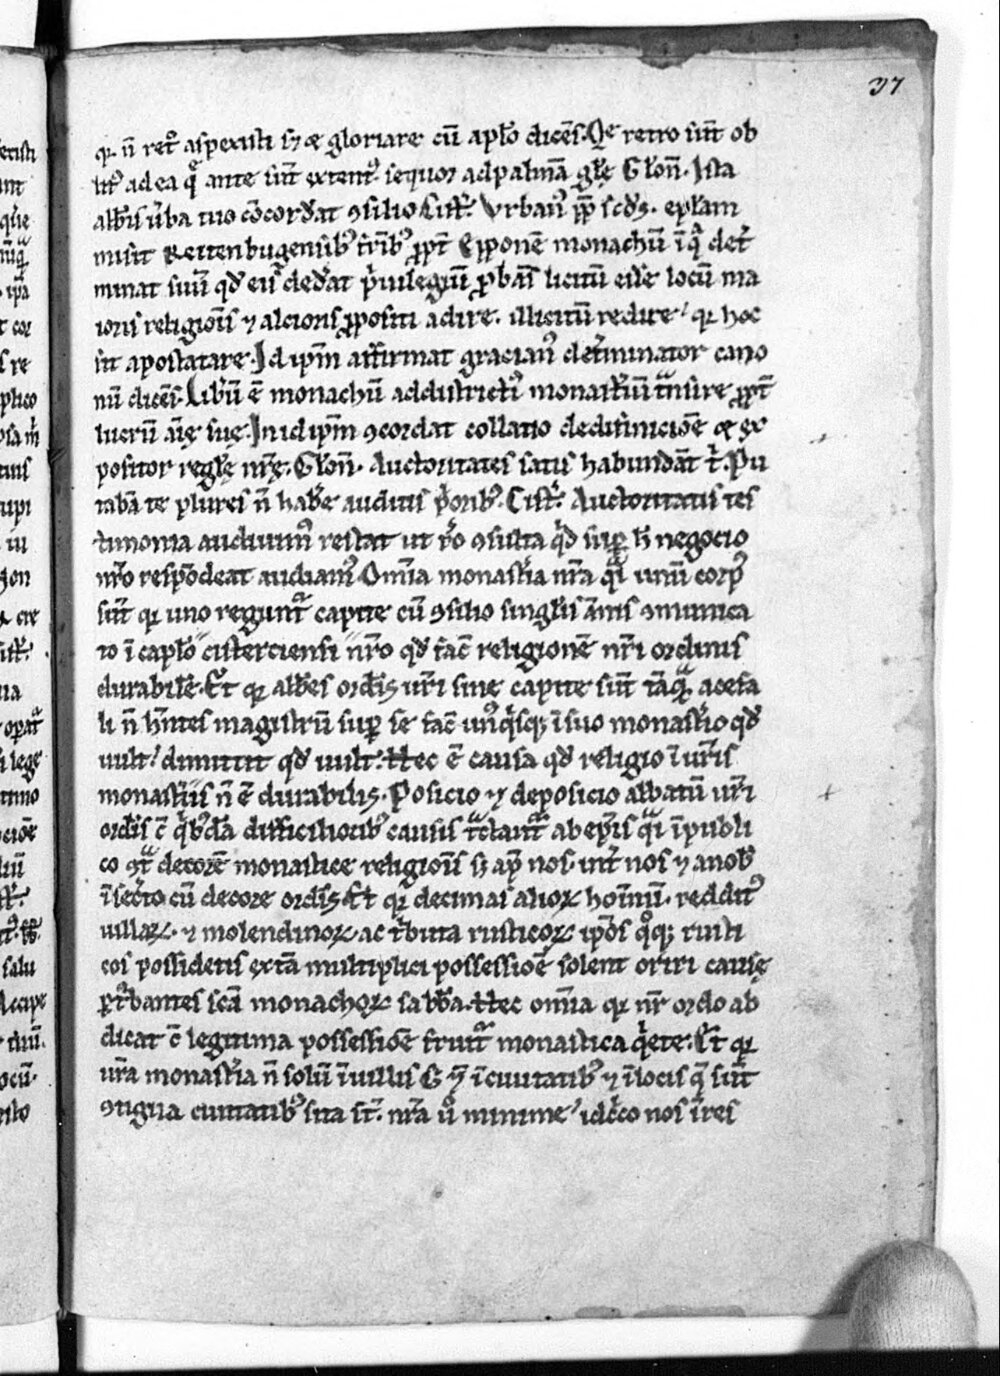 37
qr n̄ ret͛ aspexisti sꝫ ⁊ e gloriare cū apl̄o dicēs. Qe retro sūt ob
lit᷒ ad ea q̄ ante sūt extent᷒ sequor ad palmā gl̄e Clōn. Ista
abb̄is ūba tuo cōcordāt ꝯsilio Cist̄. Vrban᷒ pp̄ scd̄s. epl̄am
misit Reitenbugensib᷒ fr̄ib᷒ ꝓpt̄ Epponē monachū ī qͣ det̄
minat suū qd̄ eis dederat p̄uilegiū ꝓbās licitū esse locū ma
ioris religiōis ⁊ alcioris ꝓpositi adire. illicitū redire qr hoc
sit apostatare. Id ip̄m affirmat gracian᷒ det̄minator cano
nū dicēs. Lib̄ū ē monachū ad districti᷒ monast̄iū tͣnsire ꝓpt̄
lucrū aīę suę. In id ip̄m ꝯcordat collatio de difinicionē ⁊ ex
positor regl̄ę nr̄ę. Clōn. Auctoritates satis habundāt t̄. Pu
tabā te plures n̄ hab̄e auditis p̄orib᷒. Cist̄. Auctoritatis tes
timonia audiuim᷒ restat ut rō ꝯsulta qͥd suꝑ h̄ negocio
nr̄o respōdeat audiam᷒. Omīa monast̄ia nr̄a qͣi unū corp᷒
sūt qr uno regunt̄ capite cū ꝯsilio singl̄is ānis ꝯmunica
to ī capl̄o cisterciensi nr̄o qd̄ fac̄ religionē nr̄i ordinis
durabilē. Et qr abb̄es ordīs ur̄i sine capite sūt tāqͣ acefa
li n̄ hn̄tes magistrū suꝑ se fac̄ un᷒qͥsqꝫ ī suo monast̄io qd̄
uult dimittit qd̄ uult. Hec ē causa qd̄ religio ī ur̄is
monast̄iis n̄ ē durabilis. Posicio ⁊ deposicio abbatū ur̄i
ordīs ē qͥb᷒dā difficiliorib᷒ causis tͣctant̄ ab ep̄is qͣi ī publi
co ꝯtͣ decorē monastice religiōis sꝫ ap̄ nos int̄ nos ⁊ a nob᷒
ī sec̄to cū decore ordīs. Et qr decimas alioꝝ homīnū. reddit᷒
uillaꝝ. ⁊ molendinoꝝ ac t̄buta rusticoꝝ ip̄os qͦqꝫ rusti
cos possidetis ex tā multiplici possessiōe solent oriri causę
ꝑt᷒bantes scā monachoꝝ sabb̄a. Hec omīa qr nr̄ ordo ab
dicat ē legitima possessiōe fruit̄ monastica qͥete. Et qr
ur̄a monast̄ia n̄ solū ī uillis ī ciuitatib᷒ ⁊ ī locis q̄ sūt
ꝯtigua ciuitatib᷒ sita st̄. nr̄a ū minime idcͥco nos īres